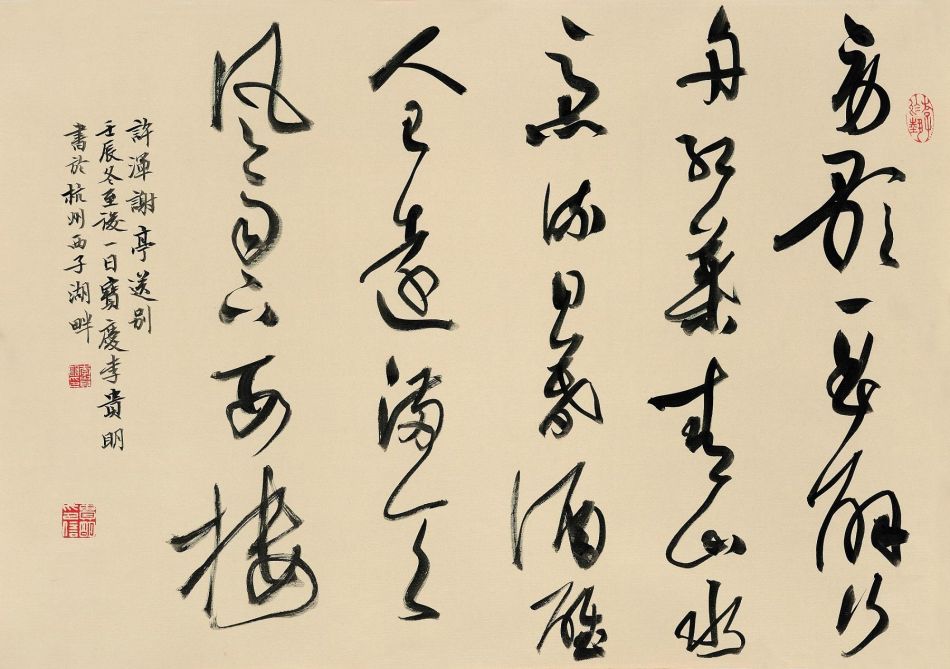 勞歌一曲解行
舟紅葉青山水
急流日暮酒醒
人已遠滿天
風雨下西樓
許渾謝亭送别
壬辰冬至後一日寶慶李貴明
書於杭州西子湖畔